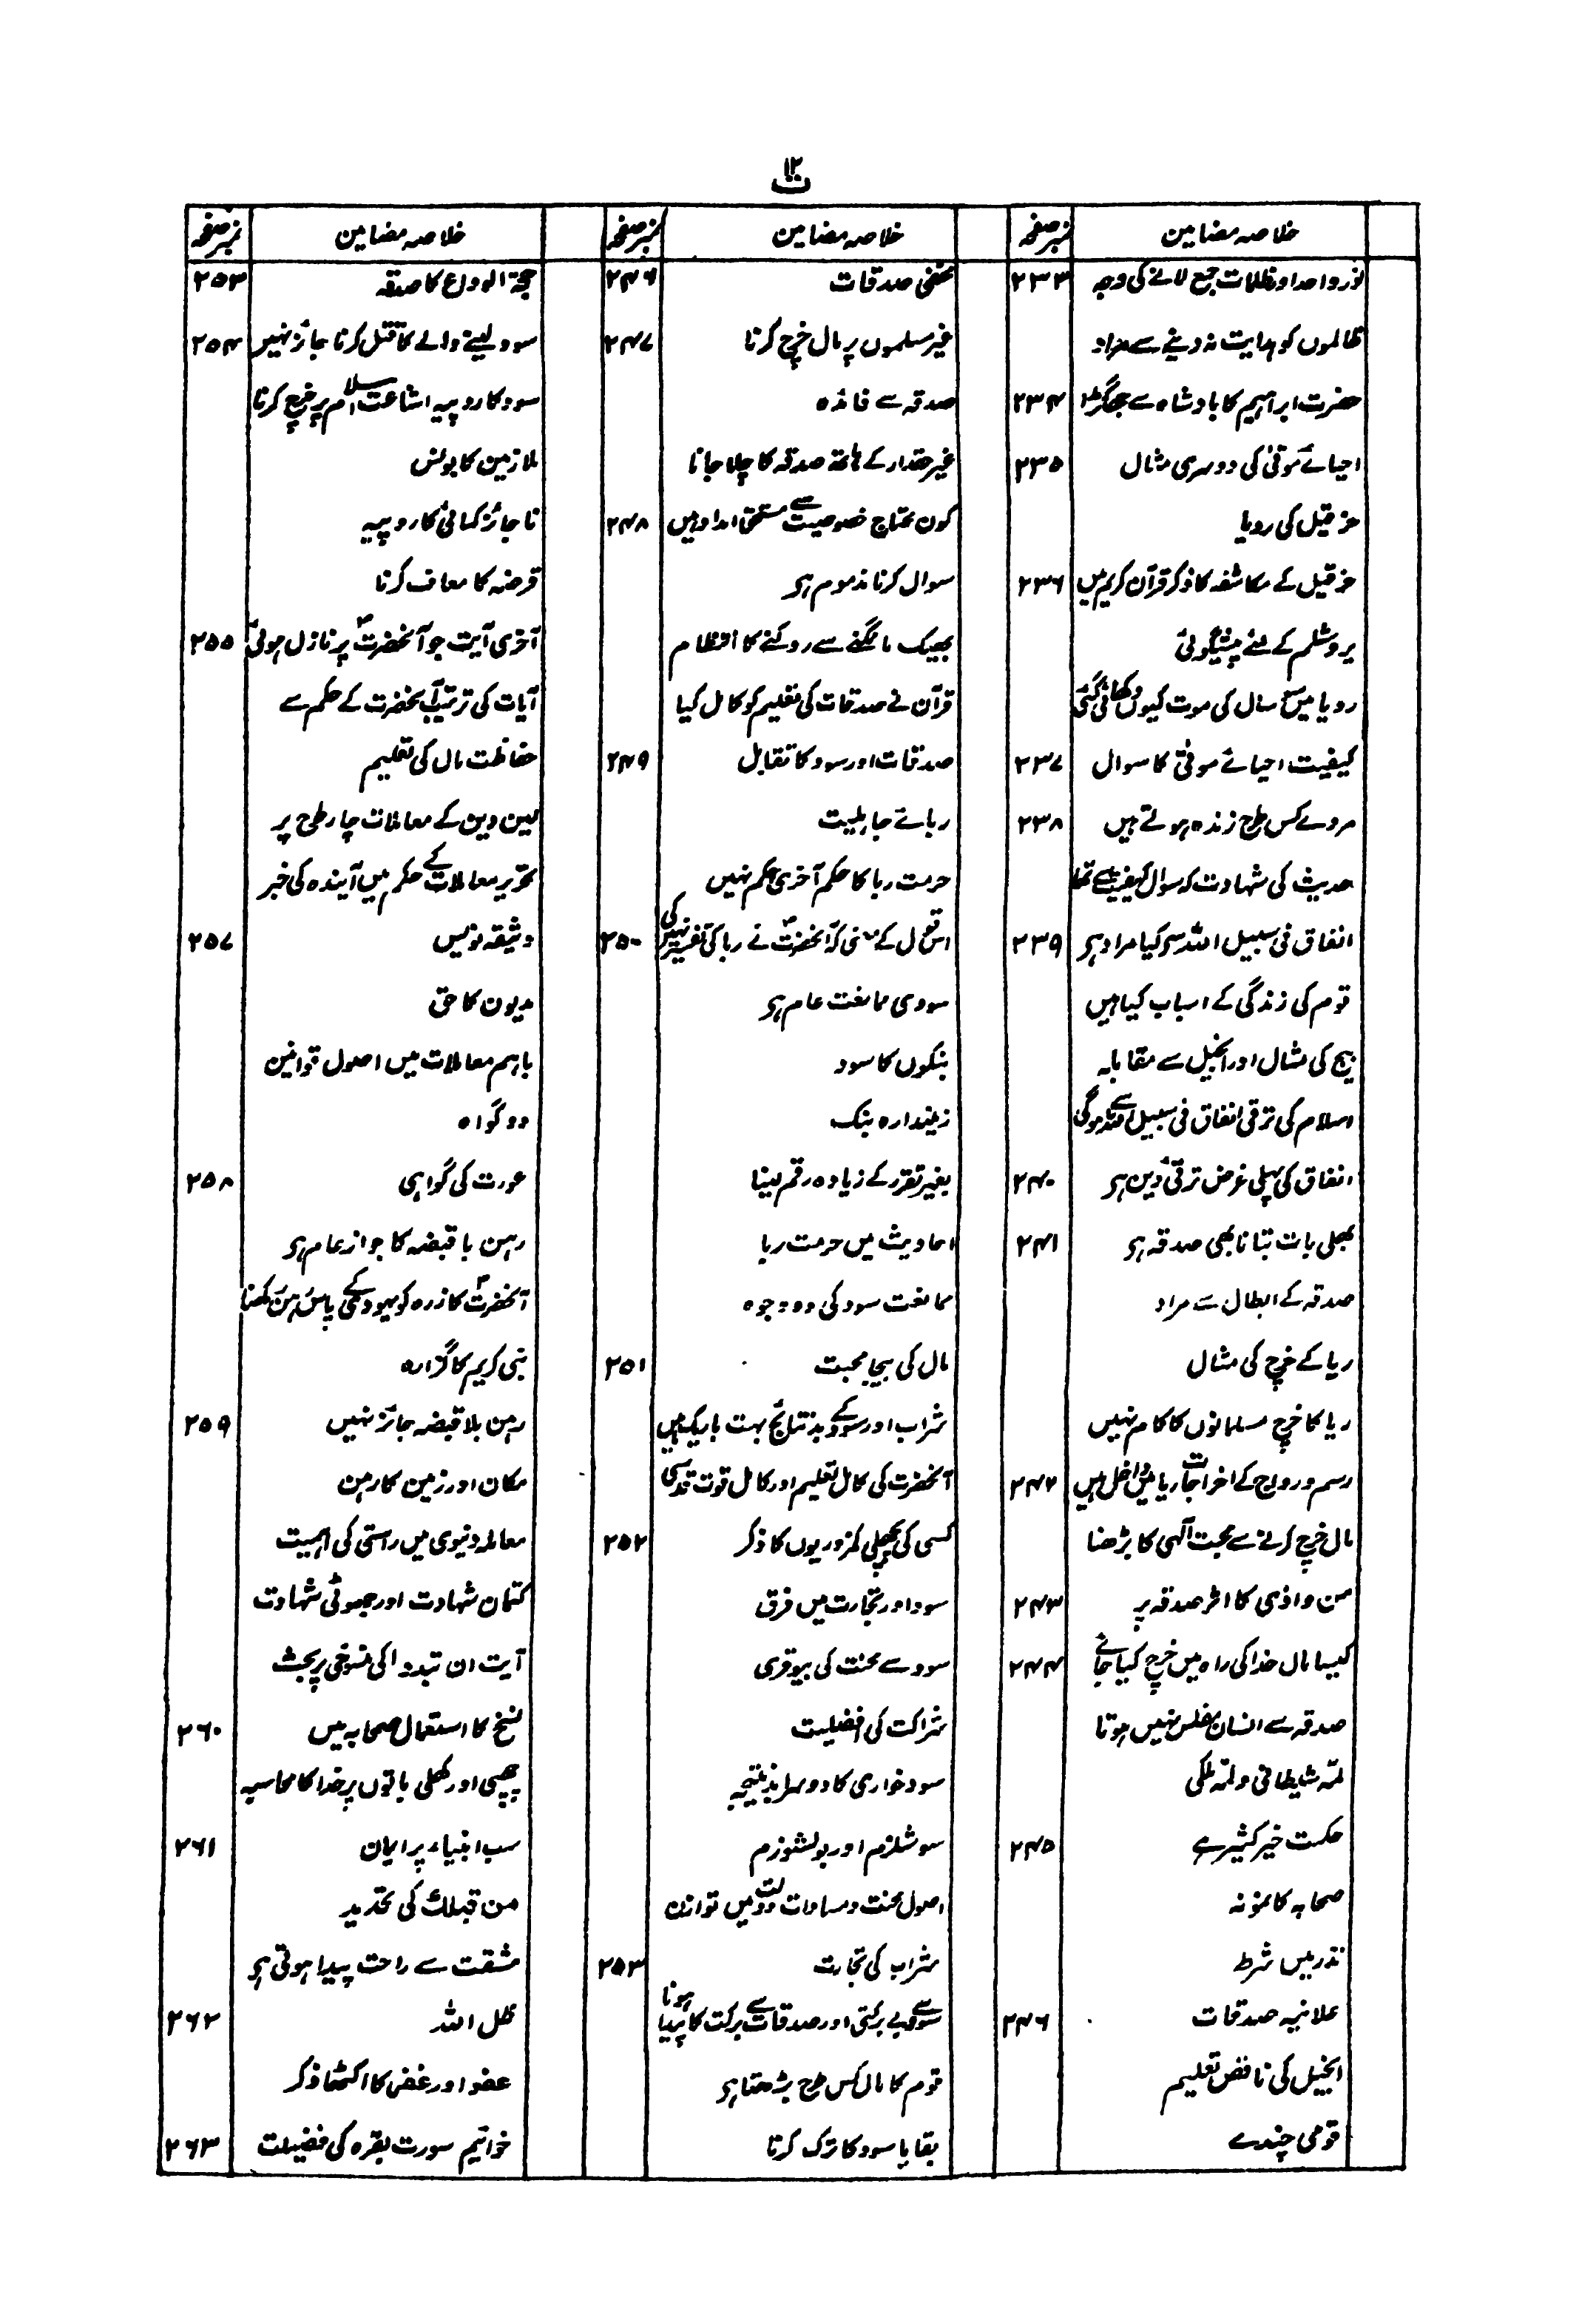 ۱۲
ت
خلاصہ مضامین
نمبر صفحہ
نور واحد اور ظلمات جمع لانے کی وجہ ۲۳۳
ظالموں کو ہدایت نہ دینے سے مراد
حضرت ابراہیم کا بادشاہ سے جھگڑا ۲۳۴
احیائے موتیٰ کی دوسری مثال ۲۳۵
حزقیل کی رویا
حزقیل کے مکاشفہ کا ذکر قرآن کریم میں ۲۳۶
یروشلم کے لئے پیشگوئی
رویا میں سو سال کی موت کیوں دکھائی گئی
کیفیت احیائے موتیٰ کا سوال ۲۳۷
مردے کس طرح زندہ ہوتے ہیں ۲۳۸
حدیث کی شہادت کہ سوال کیفیت سے تھا
انفاق فی سبیل اللہ سے کیا مراد ہے ۲۳۹
قوم کی زندگی کے اسباب کیا ہیں
بیج کی مثال اور انجیل سے مقابلہ
اسلام کی ترقی انفاق فی سبیل اللہ سے ہوگی
انفاق کی پہلی غرض ترقی دین ہے ۲۴۰
بھلی بات بتانا بھی صدقہ ہے ۲۴۱
صدقہ کے ابطال سے مراد
ریا کے خرچ کی مثال
ریا کا خرچ مسلمانوں کا کام نہیں
رسم و رواج کے اخراجات ریا میں داخل ہیں ۲۴۲
مال خرچ کرنے سے محبت الٰہی کا بڑھنا
من و اذیٰ کا اثر صدقہ پر ۲۴۳
کیسا مال خدا کی راہ میں خرچ کیا جائے ۲۴۴
صدقہ سے انسان مفلس نہیں ہوتا
لمّہ شیطانی و لمّہ ملکی
حکمت خیر کثیر ہے ۲۴۵
صحابہ کا نمونہ
نذر میں شرط
علانیہ صدقات ۲۴۶
انجیل کی ناقص تعلیم
قومی چندے
خلاصہ مضامین
نمبر صفحہ
مخفی صدقات ۲۴۶
غیر مسلموں پر مال خرچ کرنا ۲۴۷
صدقہ سے فائدہ
غیر حقدار کے ہاتھ صدقہ کا چلا جانا
کون محتاج خصوصیت سے مستحق امداد ہیں ۲۴۸
سوال کرنا مذموم ہے
بھیک مانگنے سے روکنے کا انتظام
قرآن نے صدقات کی تعلیم کو کامل کیا
صدقات اور سود کا تقابل ۲۴۹
ربائے جاہلیت
حرمت ربا کا حکم آخری حکم نہیں
اس قول کے معنی کہ آنحضرتؐ نے ربا کی تفسیر نہیں کی ۲۵۰
سود کی ممانعت عام ہے
بنکوں کا سود
زمیندارہ بنک
بغیر تقرر کے زیادہ رقم لینا
احادیث میں حرمت ربا
ممانعت سود کی دو وجوہ
مال کی بیجا محبت ۲۵۱
شراب اور سود کے بد نتائج بہت باریک ہیں
آنحضرت کی کامل تعلیم اور کامل قوت قدسی
کسی کی پچھلی کمزوریوں کا ذکر ۲۵۲
سود اور تجارت میں فرق
سود سے محنت کی بیوقری
شراکت کی افضلیت
سود خواری کا دوسرا بد نتیجہ
سوشلزم اور بولشوزم
اصول محنت و مساوات دولت میں توازن
شراب کی تجارت ۲۵۳
سود سے بے برکتی اور صدقات سے برکت کا پیدا ہونا
قوم کا مال کس طرح بڑھتا ہے
بقایا سود کا ترک کرنا
خلاصہ مضامین
نمبر صفحہ
حجۃ الوداع کا صدقہ ۲۵۳
سود لینے والے کا قتل کرنا جائز نہیں ۲۵۴
سود کا روپیہ اشاعت اسلام پر خرچ کرنا
ملازمین کا بونس
ناجائز کمائی کا روپیہ
قرضہ کا معاف کرنا
آخری آیت جو آنحضرتؐ پر نازل ہوئی ۲۵۵
آیات کی ترتیب آنحضرت کے حکم سے
حفاظت مال کی تعلیم
لین دین کے معاملات چار طرح پر
تحریر معاملات کے حکم میں آیندہ کی خبر
وثیقہ نویس ۲۵۷
مدیون کا حق
باہم معاملات میں اصول قوانین
دو گواہ
عورت کی گواہی ۲۵۸
رہن باقبضہ کا جواز عام ہے
آنحضرتؐ کا زرہ کو یہودی کے پاس رہن رکھنا
نبی کریم کا گزارہ
رہن بلا قبضہ جائز نہیں ۲۵۹
مکان اور زمین کا رہن
معاملہ دنیوی میں راستی کی اہمیت
کتمان شہادت اور جھوٹی شہادت
آیت ان تبدوا کی منسوخی پر بحث
نسخ کا استعمال صحابہ میں ۲۶۰
چھپی اور کھلی باتوں پر خدا کا محاسبہ
سب انبیاء پر ایمان ۲۶۱
من قبلك کی تحدید
مشقت سے راحت پیدا ہوتی ہے
ظل اللہ ۲۶۲
عفو اور غفر کا اکٹھا ذکر
خواتیم سورت بقرہ کی فضیلت ۲۶۳